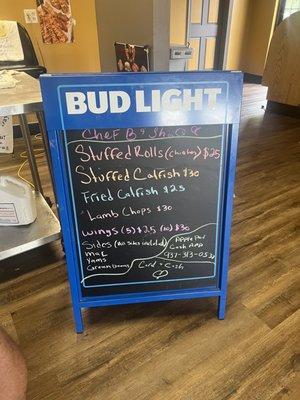 BUD LIGHT
Chef B's
Stuffed Rolls (chicken) $25
Stuffed Catfish $30
Fried Catfish $25
Lamb Chops $30
Wings (5) $25 (10) $30
Sides (No sides included)
Mac
Yams
Green Beans
Apple Pay
Cash App
Card + Cash